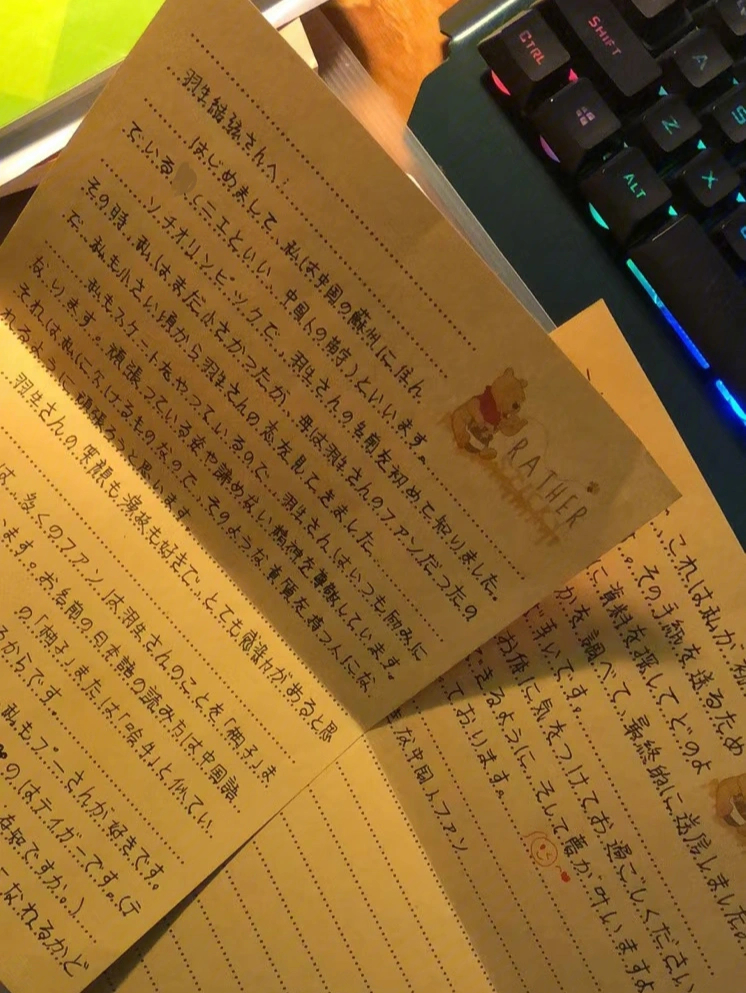 羽生結弦さんへ:
はじめまして、私は中国の蘇州に住ん
でいる (ニエといい、中国人の苗字)といいます。
ソチオリンピックで、羽生さんの名前を初めて知りました。
その時、私はまだ小さかったが、母は羽生さんのファンだったの
で、私も小さい頃から羽生さんの試合を見てきました。
私もスケートをやっているので、羽生さんはいつも励みに
なります。頑張っている姿や諦めない精神を尊敬しています。
それは私に欠けるものなので、そのような真価を持つ人にな
れるように頑張ろうと思います
羽生さんの笑顔も演技も好きで、とても魅力があると思
は、多くのファンは羽生さんのことを「柚子」ま
ます。お名前の日本語の読み方は中国語
の「柚子」または「哈牛」と似てい
るからです。
私もプーさんが好きです。
のはティガーです。(テ
存知ですか。)
になれるかど
RATHER
これは私が
その手紙を送るため
に資料を探してどのよ
かを調べて、最終的に送信しました。
幸いです。
お体に気をつけてお過ごしください
きるように、そして夢が叶いますよ
ております。
な中国人ファン
CTRL
SHIFT
A
Z
S
ALT
X